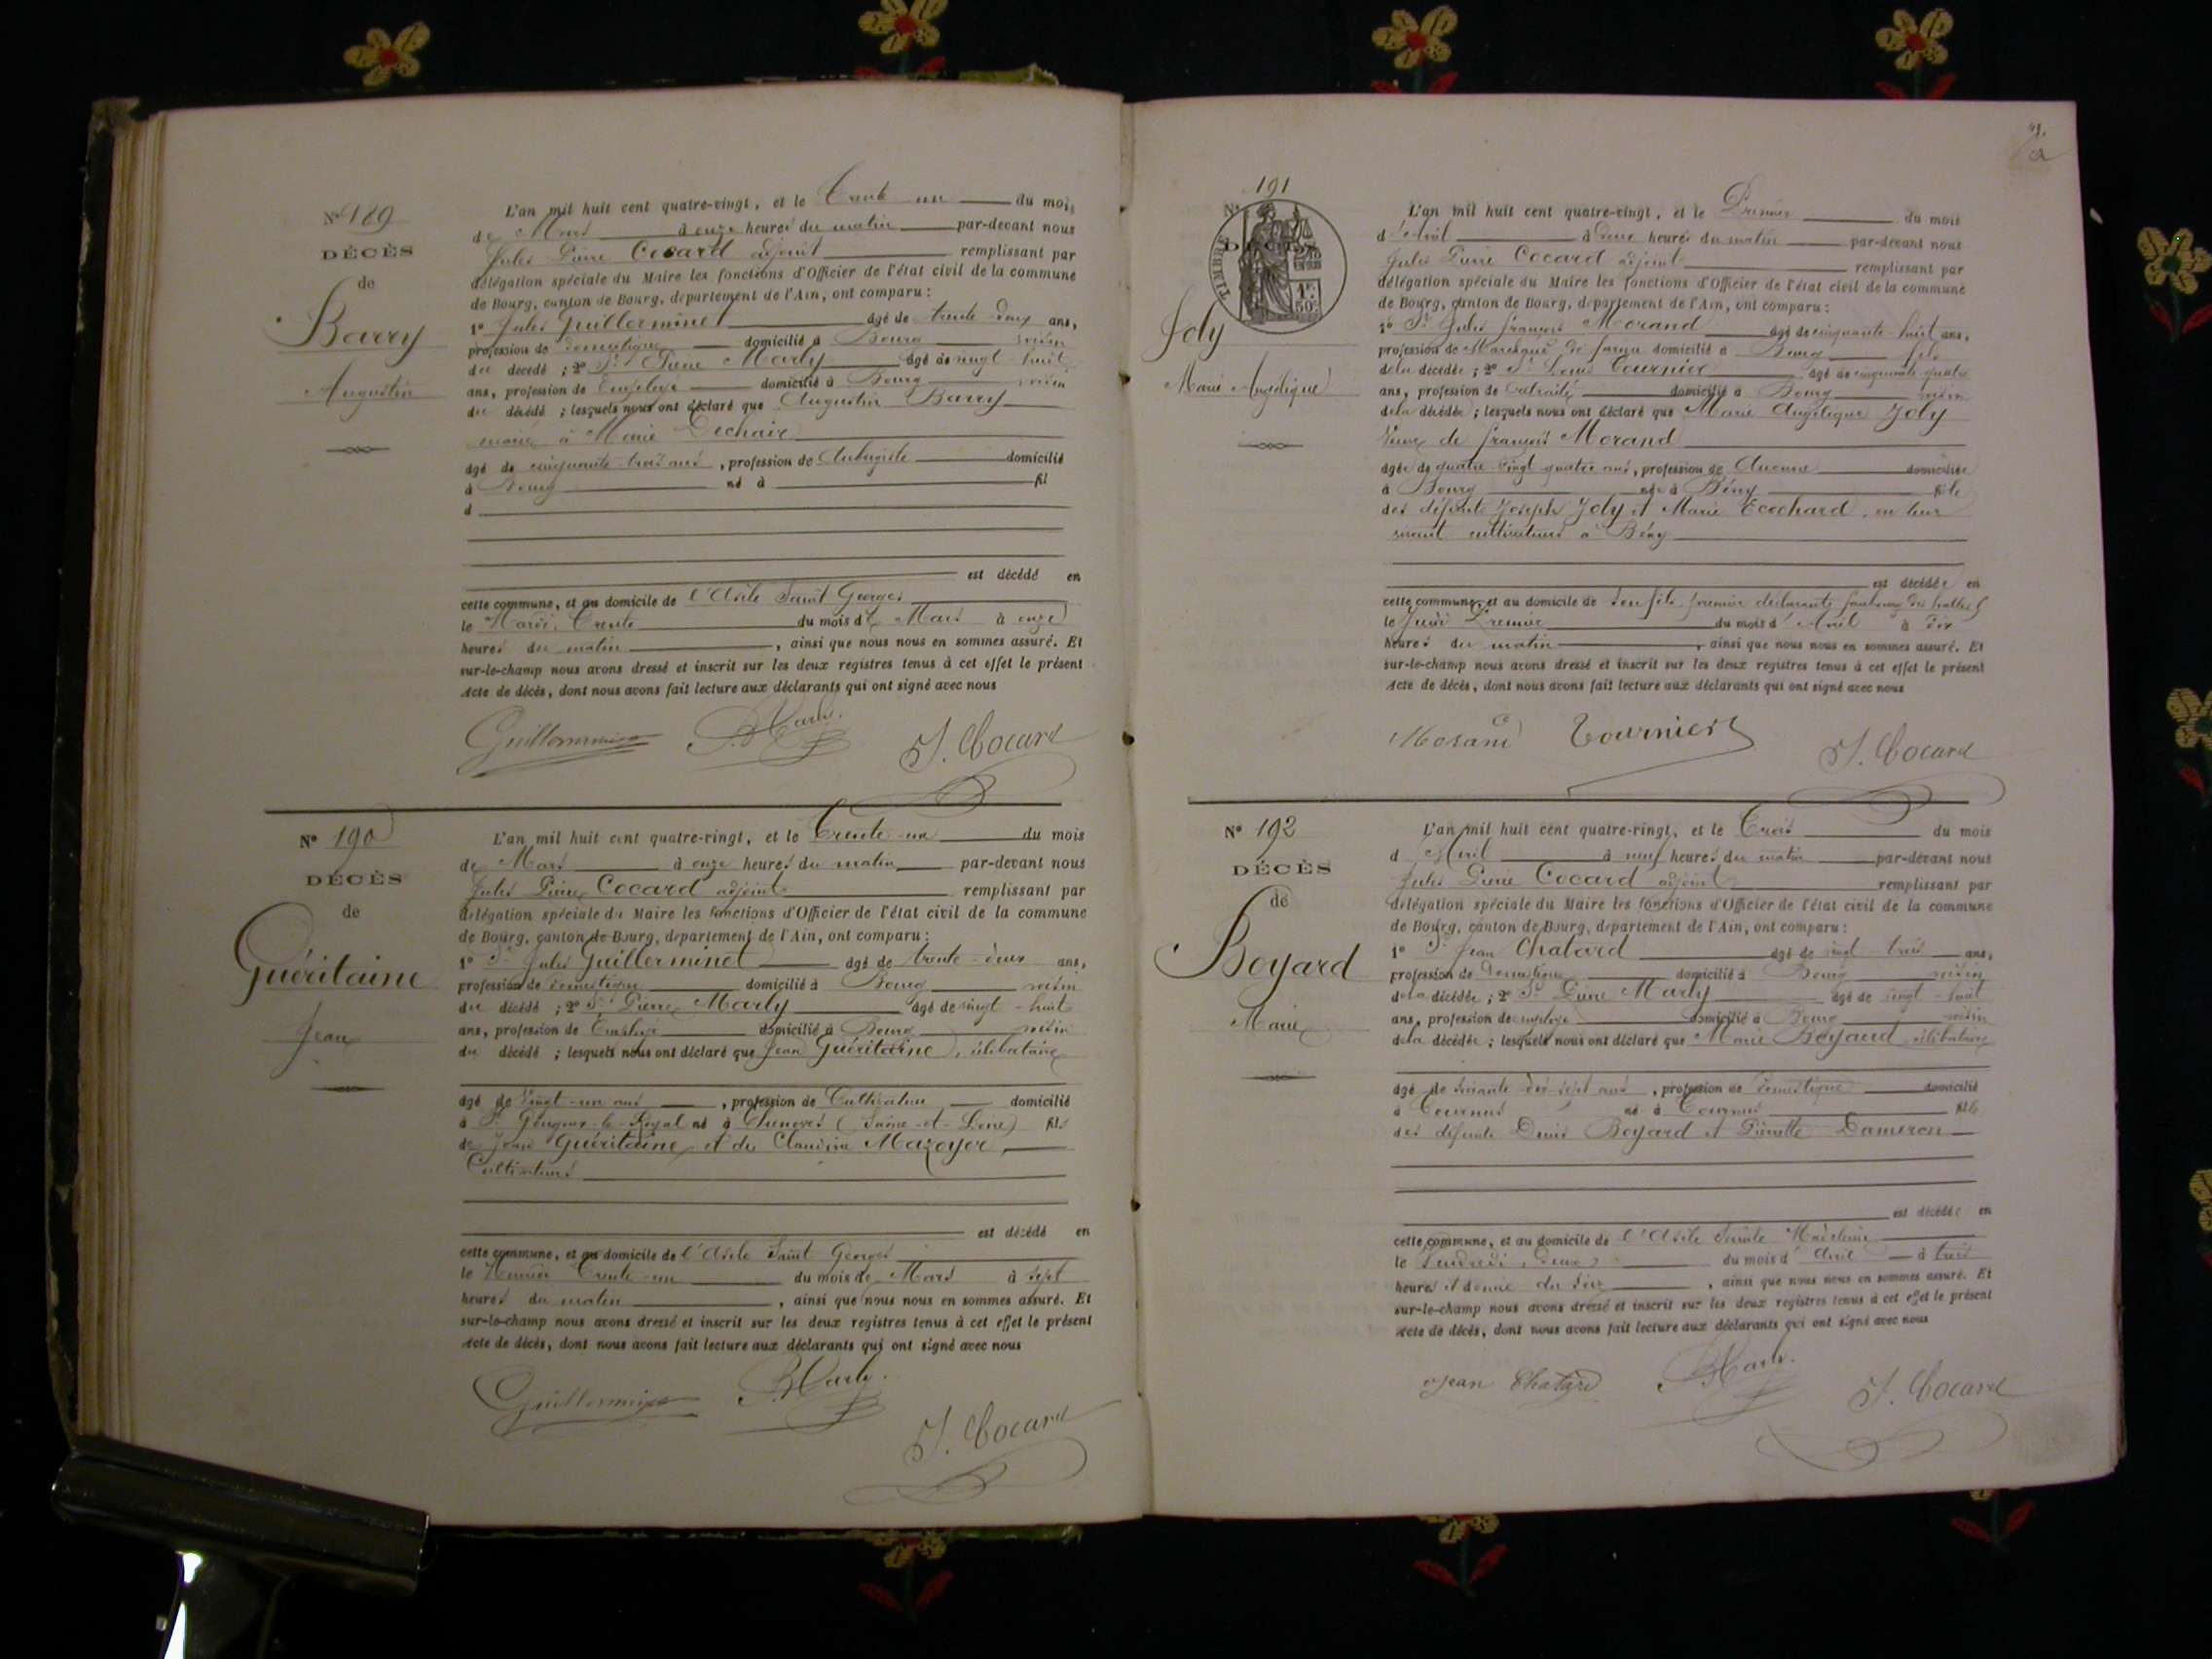 Nº 189
DÉCÈS
de
Barry
Augustin
L'an mil huit cent quatre-vingt, et le Trente un du mois
de Mars à onze heures du matin par-devant nous
Jules Pierre Cocard adjoint remplissant par
délégation spéciale du Maire les fonctions d'Officier de l'état civil de la commune
de Bourg, canton de Bourg, département de l'Ain, ont comparu :
1º Jules Guillerminet âgé de trente-deux ans,
profession de domestique domicilié à Bourg voisin
du décédé ; 2º Sr Pierre Marly âgé de vingt-huit
ans, profession de Employé domicilié à Bourg voisin
du décédé ; lesquels nous ont déclaré que Augustin Barry
marié à Marie Dechair
âgé de cinquante-trois ans, profession de Aubergiste domicilié
à Bourg né à fil
d
est décédé en
cette commune, et au domicile de l'Asile Saint Georges
le Mardi, Trente du mois de Mars à onze
heures du matin, ainsi que nous nous en sommes assuré. Et
sur-le-champ nous avons dressé et inscrit sur les deux registres tenus à cet effet le présent
Acte de décès, dont nous avons fait lecture aux déclarants qui ont signé avec nous
Guillerminet P. Marly. J. Cocard
Nº 190
DÉCÈS
de
Guéritaine
Jean
L'an mil huit cent quatre-vingt, et le Trente-un du mois
de Mars à onze heures du matin par-devant nous
Jules Pierre Cocard adjoint remplissant par
délégation spéciale du Maire les fonctions d'Officier de l'état civil de la commune
de Bourg, canton de Bourg, département de l'Ain, ont comparu :
1º Sr Jules Guillerminet âgé de trente-deux ans,
profession de domestique domicilié à Bourg voisin
du décédé ; 2º Sr Pierre Marly âgé de vingt-huit
ans, profession de Employé domicilié à Bourg voisin
du décédé ; lesquels nous ont déclaré que Jean Guéritaine, célibataire
âgé de Vingt-un ans, profession de Cultivateur domicilié
à St Gengoux-le-Royal né à Chenoves (Saône-et-Loire) fils
de Jean Guéritaine et de Claudine Mazoyer,
Cultivateurs
est décédé en
cette commune, et au domicile de l'Asile Saint Georges
le Trente-un du mois de Mars à sept
heures du matin, ainsi que nous nous en sommes assuré. Et
sur-le-champ nous avons dressé et inscrit sur les deux registres tenus à cet effet le présent
Acte de décès, dont nous avons fait lecture aux déclarants qui ont signé avec nous
Guillerminet P. Marly. J. Cocard
191
Nº
DÉCÈS
TIMBRE
1F
50C
Joly
Marie Angélique
L'an mil huit cent quatre-vingt, et le Premier du mois
d'Avril à heures du matin par-devant nous
Jules Pierre Cocard adjoint remplissant par
délégation spéciale du Maire les fonctions d'Officier de l'état civil de la commune
de Bourg, canton de Bourg, département de l'Ain, ont comparu :
1º Sr Jules François Morand âgé de cinquante-huit ans,
profession de Marchand de domicilié à Bourg fils
de la décédée ; 2º Sr Louis Tournier âgé de cinquante-quatre
ans, profession de retraité domicilié à Bourg voisin
de la décédée ; lesquels nous ont déclaré que Marie Angélique Joly
Veuve de François Morand
âgée de quatre-vingt quatre ans, profession de Aucune domiciliée
à Bourg née à Bény fille
des défunts Joseph Joly et Marie Ecochard, en leur
vivant cultivateurs à Bény
est décédée en
cette commune, et au domicile de son fils, premier déclarant, faubourg des halles
le Jeudi Premier du mois d'Avril à dix
heures du matin, ainsi que nous nous en sommes assuré. Et
sur-le-champ nous avons dressé et inscrit sur les deux registres tenus à cet effet le présent
Acte de décès, dont nous avons fait lecture aux déclarants qui ont signé avec nous
Morand Tournier J. Cocard
Nº 192
DÉCÈS
de
Boyard
Marie
L'an mil huit cent quatre-vingt, et le Trois du mois
d'Avril à neuf heures du matin par-devant nous
Jules Pierre Cocard adjoint remplissant par
délégation spéciale du Maire les fonctions d'Officier de l'état civil de la commune
de Bourg, canton de Bourg, département de l'Ain, ont comparu :
1º Sr Jean Chatard âgé de vingt-trois ans,
profession de Domestique domicilié à Bourg voisin
de la décédée ; 2º Sr Pierre Marly âgé de vingt-huit
ans, profession de employé domicilié à Bourg voisin
de la décédée ; lesquels nous ont déclaré que Marie Boyard célibataire
âgé de soixante-dix-sept ans, profession de domestique domicilié
à Tournus né à Tournus fille
des défunts Denis Boyard et Pierrette Dameron
est décédée en
cette commune, et au domicile de l'Asile Sainte Madeleine
le Vendredi, Deux du mois d'Avril à trois
heures et demie du soir, ainsi que nous nous en sommes assuré. Et
sur-le-champ nous avons dressé et inscrit sur les deux registres tenus à cet effet le présent
Acte de décès, dont nous avons fait lecture aux déclarants qui ont signé avec nous
Jean Chatard P. Marly. J. Cocard